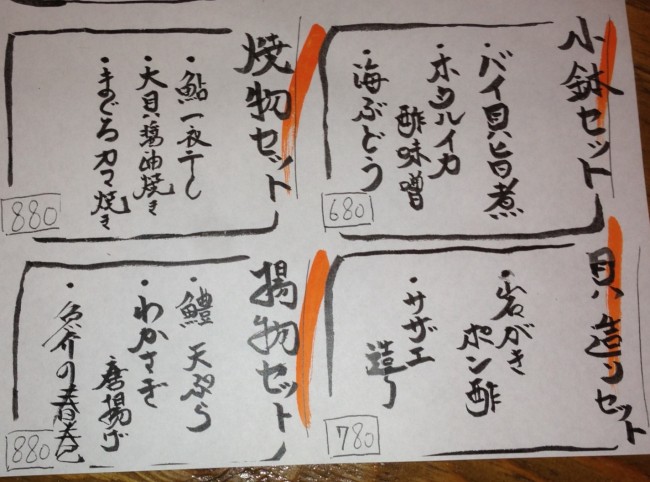 小鉢セット
・バイ貝旨煮
・ホタルイカ
酢味噌
・海ぶどう
680
焼物セット
・鮎一夜干し
・大貝醤油焼き
・まぐろカマ焼き
880
貝造りセット
・岩がき
ポン酢
・サザエ
造り
780
揚物セット
・鱧天ぷら
・わかさぎ
唐揚げ
・魚介の春巻
880